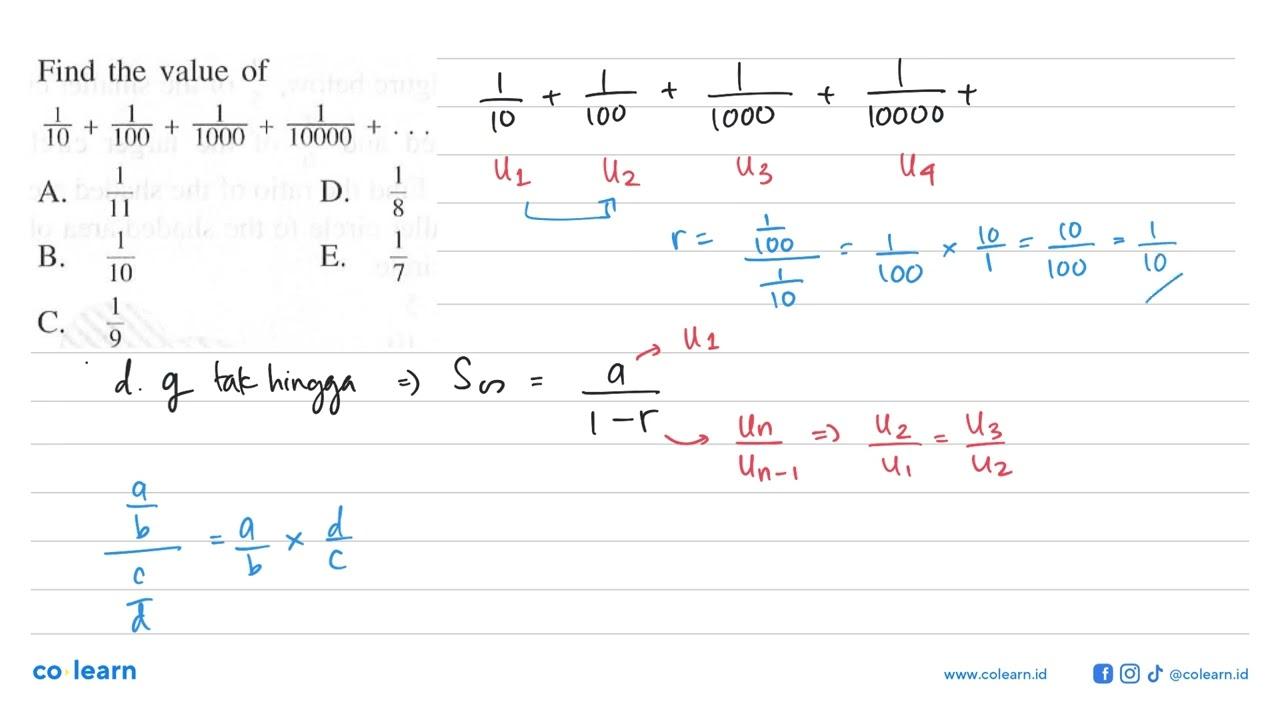 Find the value of
1/10 + 1/100 + 1/1000 + 1/10000 + . . .
A. 1/11 D. 1/8
B. 1/10 E. 1/7
C. 1/9
1/10 + 1/100 + 1/1000 + 1/10000 +
u1 u2 u3 u4
r = (1/100)/(1/10) = 1/100 × 10/1 = 10/100 = 1/10
d. g tak hingga => S∞ = a/(1-r)
u1
un/un-1 => u2/u1 = u3/u2
(a/b)/(c/d) = a/b × d/c
co learn
www.colearn.id
@colearn.id